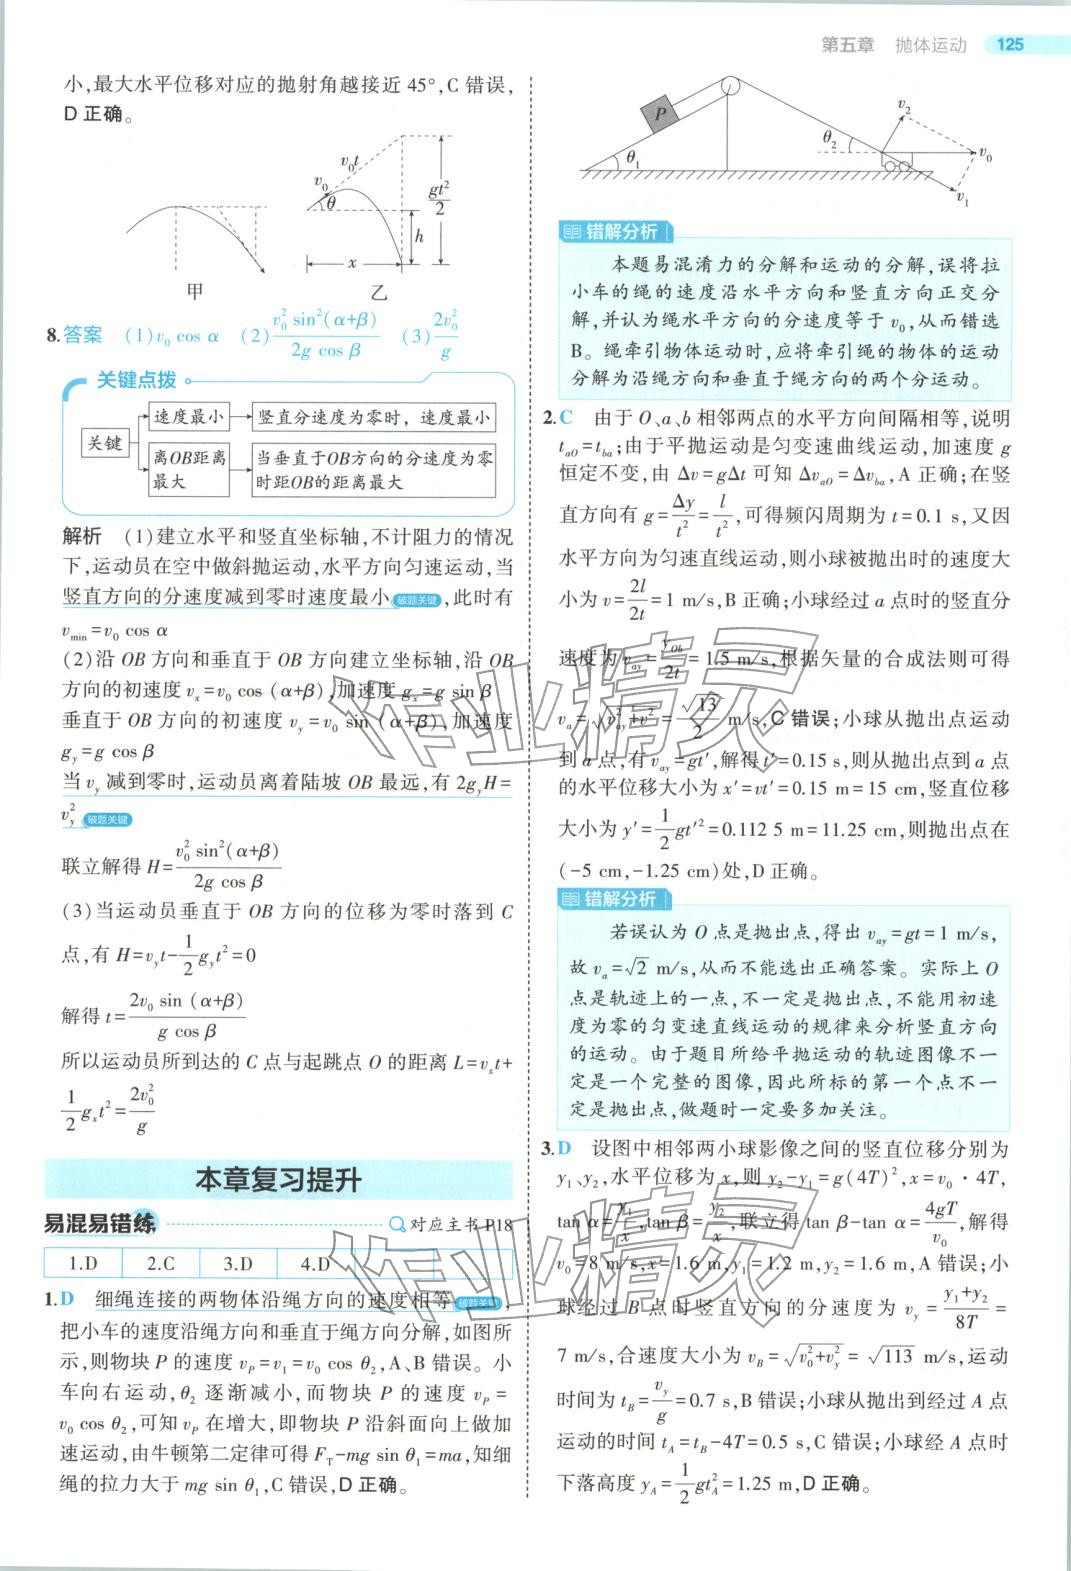 第五章 抛体运动 125
小,最大水平位移对应的抛射角越接近 45°,C 错误,
D 正确。
v₀ v₀t θ gt²/2 h x
甲 乙
8.答案 (1)v₀ cos α (2)v₀² sin²(α+β)/(2g cos β) (3)2v₀²/g
关键点拨
关键
速度最小 竖直分速度为零时，速度最小
离OB距离最大 当垂直于OB方向的分速度为零时距OB的距离最大
解析 (1)建立水平和竖直坐标轴,不计阻力的情况
下,运动员在空中做斜抛运动,水平方向匀速运动,当
竖直方向的分速度减到零时速度最小 破题关键 ,此时有
v_min=v₀ cos α
(2)沿 OB 方向和垂直于 OB 方向建立坐标轴,沿 OB
方向的初速度 vₓ=v₀ cos (α+β),加速度 gₓ=g sin β
垂直于 OB 方向的初速度 v_y=v₀ sin (α+β),加速度
g_y=g cos β
当 v_y 减到零时,运动员离着陆坡 OB 最远,有 2g_yH=
v_y² 破题关键
联立解得 H=v₀² sin²(α+β)/(2g cos β)
(3)当运动员垂直于 OB 方向的位移为零时落到 C
点,有 H=v_yt-1/2 g_yt²=0
解得 t=2v₀ sin (α+β)/(g cos β)
所以运动员所到达的 C 点与起跳点 O 的距离 L=vₓt+
1/2 gₓt²=2v₀²/g
本章复习提升
易混易错练 对应主书 P18
1.D 2.C 3.D 4.D
1.D 细绳连接的两物体沿绳方向的速度相等 破题关键 ,
把小车的速度沿绳方向和垂直于绳方向分解,如图所
示,则物块 P 的速度 v_P=v₁=v₀ cos θ₂,A、B 错误。小
车向右运动,θ₂ 逐渐减小,而物块 P 的速度 v_P=
v₀ cos θ₂,可知 v_P 在增大,即物块 P 沿斜面向上做加
速运动,由牛顿第二定律可得 F_T-mg sin θ₁=ma,知细
绳的拉力大于 mg sin θ₁,C 错误,D 正确。
P θ₁ θ₂ v₂ v₀ v₁
错解分析
本题易混淆力的分解和运动的分解,误将拉
小车的绳的速度沿水平方向和竖直方向正交分
解,并认为绳水平方向的分速度等于 v₀,从而错选
B。绳牵引物体运动时,应将牵引绳的物体的运动
分解为沿绳方向和垂直于绳方向的两个分运动。
2.C 由于 O、a、b 相邻两点的水平方向间隔相等,说明
t_aO=t_ba;由于平抛运动是匀变速曲线运动,加速度 g
恒定不变,由 Δv=gΔt 可知 Δv_aO=Δv_ba,A 正确;在竖
直方向有 g=Δy/t²=l/t²,可得频闪周期为 t=0.1 s,又因
水平方向为匀速直线运动,则小球被抛出时的速度大
小为 v=2l/2t=1 m/s,B 正确;小球经过 a 点时的竖直分
速度为 v_ay=y_Ob/2t=1.5 m/s,根据矢量的合成法则可得
v_a=√(v_ay²+v²)=√13/2 m/s,C 错误;小球从抛出点运动
到 a 点,有 v_ay=gt′,解得 t′=0.15 s,则从抛出点到 a 点
的水平位移大小为 x′=vt′=0.15 m=15 cm,竖直位移
大小为 y′=1/2 gt′²=0.112 5 m=11.25 cm,则抛出点在
(-5 cm,-1.25 cm)处,D 正确。
错解分析
若误认为 O 点是抛出点,得出 v_ay=gt=1 m/s,
故 v_a=√2 m/s,从而不能选出正确答案。实际上 O
点是轨迹上的一点,不一定是抛出点,不能用初速
度为零的匀变速直线运动的规律来分析竖直方向
的运动。由于题目所给平抛运动的轨迹图像不一
定是一个完整的图像,因此所标的第一个点不一
定是抛出点,做题时一定要多加关注。
3.D 设图中相邻两小球影像之间的竖直位移分别为
y₁、y₂,水平位移为 x,则 y₂-y₁=g(4T)²,x=v₀·4T,
tan α=y₁/x,tan β=y₂/x,联立得 tan β-tan α=4gT/v₀,解得
v₀=8 m/s,x=1.6 m,y₁=1.2 m,y₂=1.6 m,A 错误;小
球经过 B 点时竖直方向的分速度为 v_y=(y₁+y₂)/8T=
7 m/s,合速度大小为 v_B=√(v₀²+v_y²)=√113 m/s,运动
时间为 t_B=v_y/g=0.7 s,B错误;小球从抛出到经过 A 点
运动的时间 t_A=t_B-4T=0.5 s,C 错误;小球经 A 点时
下落高度 y_A=1/2 gt_A²=1.25 m,D正确。
作业精灵
作业精灵